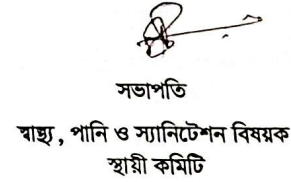 সভাপতি
স্বাস্থ্য, পানি ও স্যানিটেশন বিষয়ক
স্থায়ী কমিটি